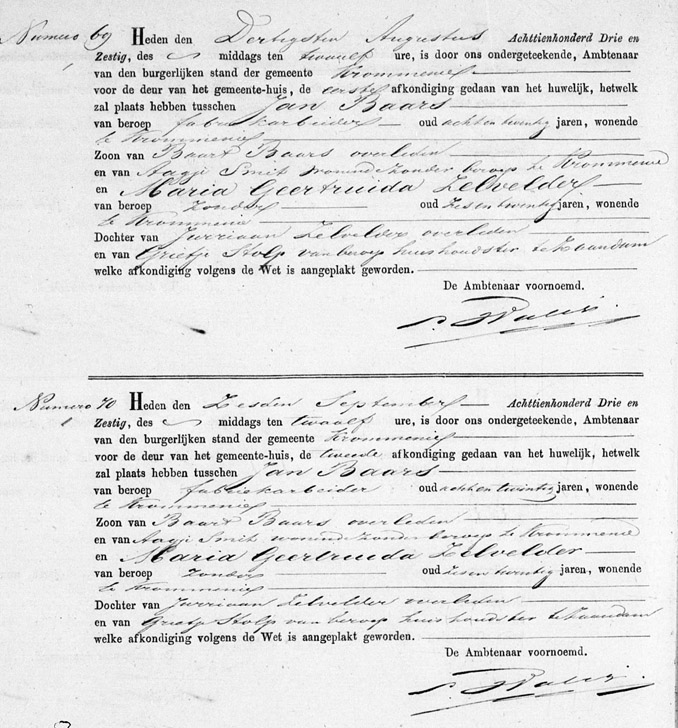 Numero 69 Heden den Dertigsten Augustus Achttienhonderd Drie en
Zestig, des middags ten twaalf ure, is door ons ondergeteekende, Ambtenaar
van den burgerlijken stand der gemeente Krommenie
voor de deur van het gemeente-huis, de eerste afkondiging gedaan van het huwelijk, hetwelk
zal plaats hebben tusschen Jan Baars
van beroep fabriekarbeider oud achtentwintig jaren, wonende
te Krommenie
Zoon van Baart Baars overleden
en van Aagje Smit wonende zonder beroep te Krommenie
en Maria Geertruida Zelvelder
van beroep Zonder oud Zesentwintig jaren, wonende
te Krommenie
Dochter van Jurriaan Zelvelder overleden
en van Grietje Stolp van beroep huishoudster te Zaandam
welke afkondiging volgens de Wet is aangeplakt geworden.
De Ambtenaar voornoemd.
Numero 70 Heden den Zesden September Achttienhonderd Drie en
Zestig, des middags ten twaalf ure, is door ons ondergeteekende, Ambtenaar
van den burgerlijken stand der gemeente Krommenie
voor de deur van het gemeente-huis, de tweede afkondiging gedaan van het huwelijk, hetwelk
zal plaats hebben tusschen Jan Baars
van beroep fabriekarbeider oud achtentwintig jaren, wonende
te Krommenie
Zoon van Baart Baars overleden
en van Aagje Smit wonende zonder beroep te Krommenie
en Maria Geertruida Zelvelder
van beroep Zonder oud Zesentwintig jaren, wonende
te Krommenie
Dochter van Jurriaan Zelvelder overleden
en van Grietje Stolp van beroep huishoudster te Zaandam
welke afkondiging volgens de Wet is aangeplakt geworden.
De Ambtenaar voornoemd.